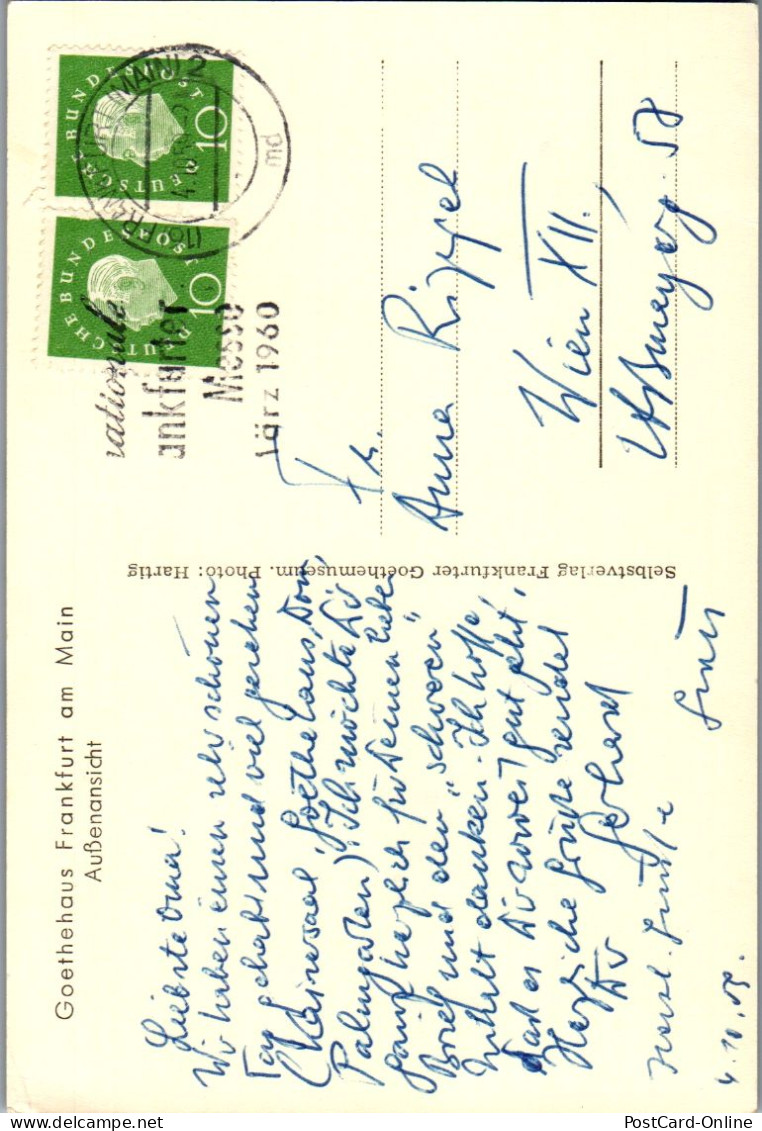 Goethehaus Frankfurt am Main
Außenansicht
Liebste Oma!
Wir haben einen sehr schönen
Tag gehabt und viel gesehen
(Kaisersaal, Goethehaus, Dom,
Palmgarten). Ich möchte Dir
ganz herzlich für Deinen liebe
Brief und den "schweren"
Inhalt danken. Ich hoffe,
daß es Dir soweit gut geht,
Herzliche Grüße sendet
Dir Gerhard
Herzl. Grüße
4.10.59.
Selbstverlag Frankfurter Goethemuseum. Photo: Hartig
DEUTSCHE BUNDESPOST
10
DEUTSCHE BUNDESPOST
10
(16) FRANKFURT (MAIN) 2
md
nationale
ankfurter
Messe
März 1960
Fr.
Anna Rippel
Wien XII.,
58
PostCard-Online